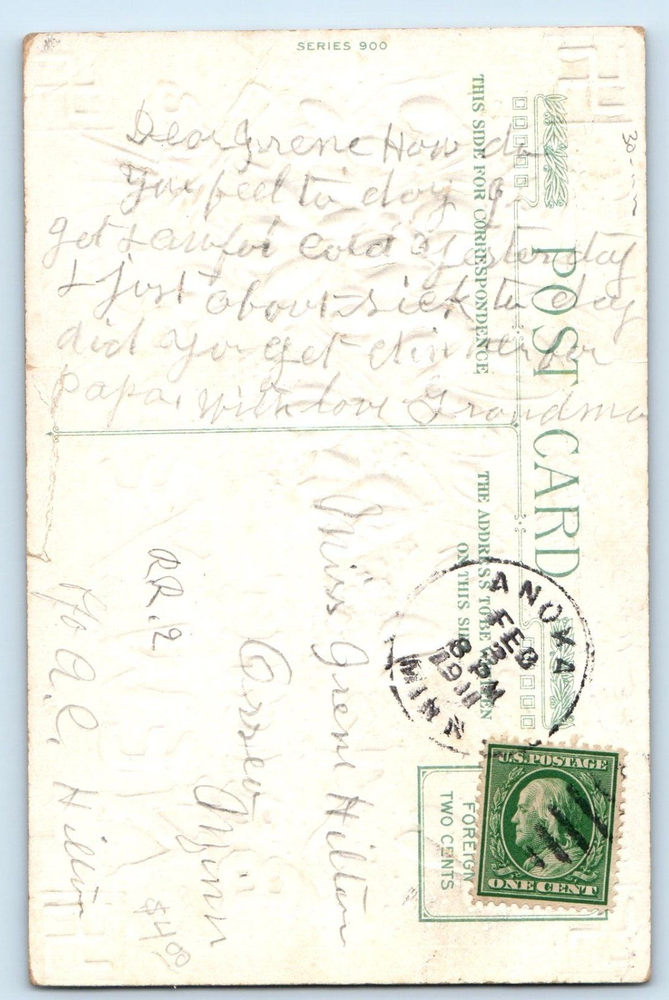 SERIES 900
Dear Irene How do
you feel to day I
got a awful cold yesterday
& just about sick to day
did you get dinner for
papa. with love Grandma
THIS SIDE FOR CORRESPONDENCE
POST CARD
THE ADDRESS TO BE WRITTEN
ON THIS SIDE
Miss Irene Hilton
Osseo
Minn
RR. 2
℅ A. C. Hilton
ANOKA
FEB
8 PM
1911
MINN
U.S. POSTAGE
ONE CENT
FOREIGN
TWO CENTS
$4.00